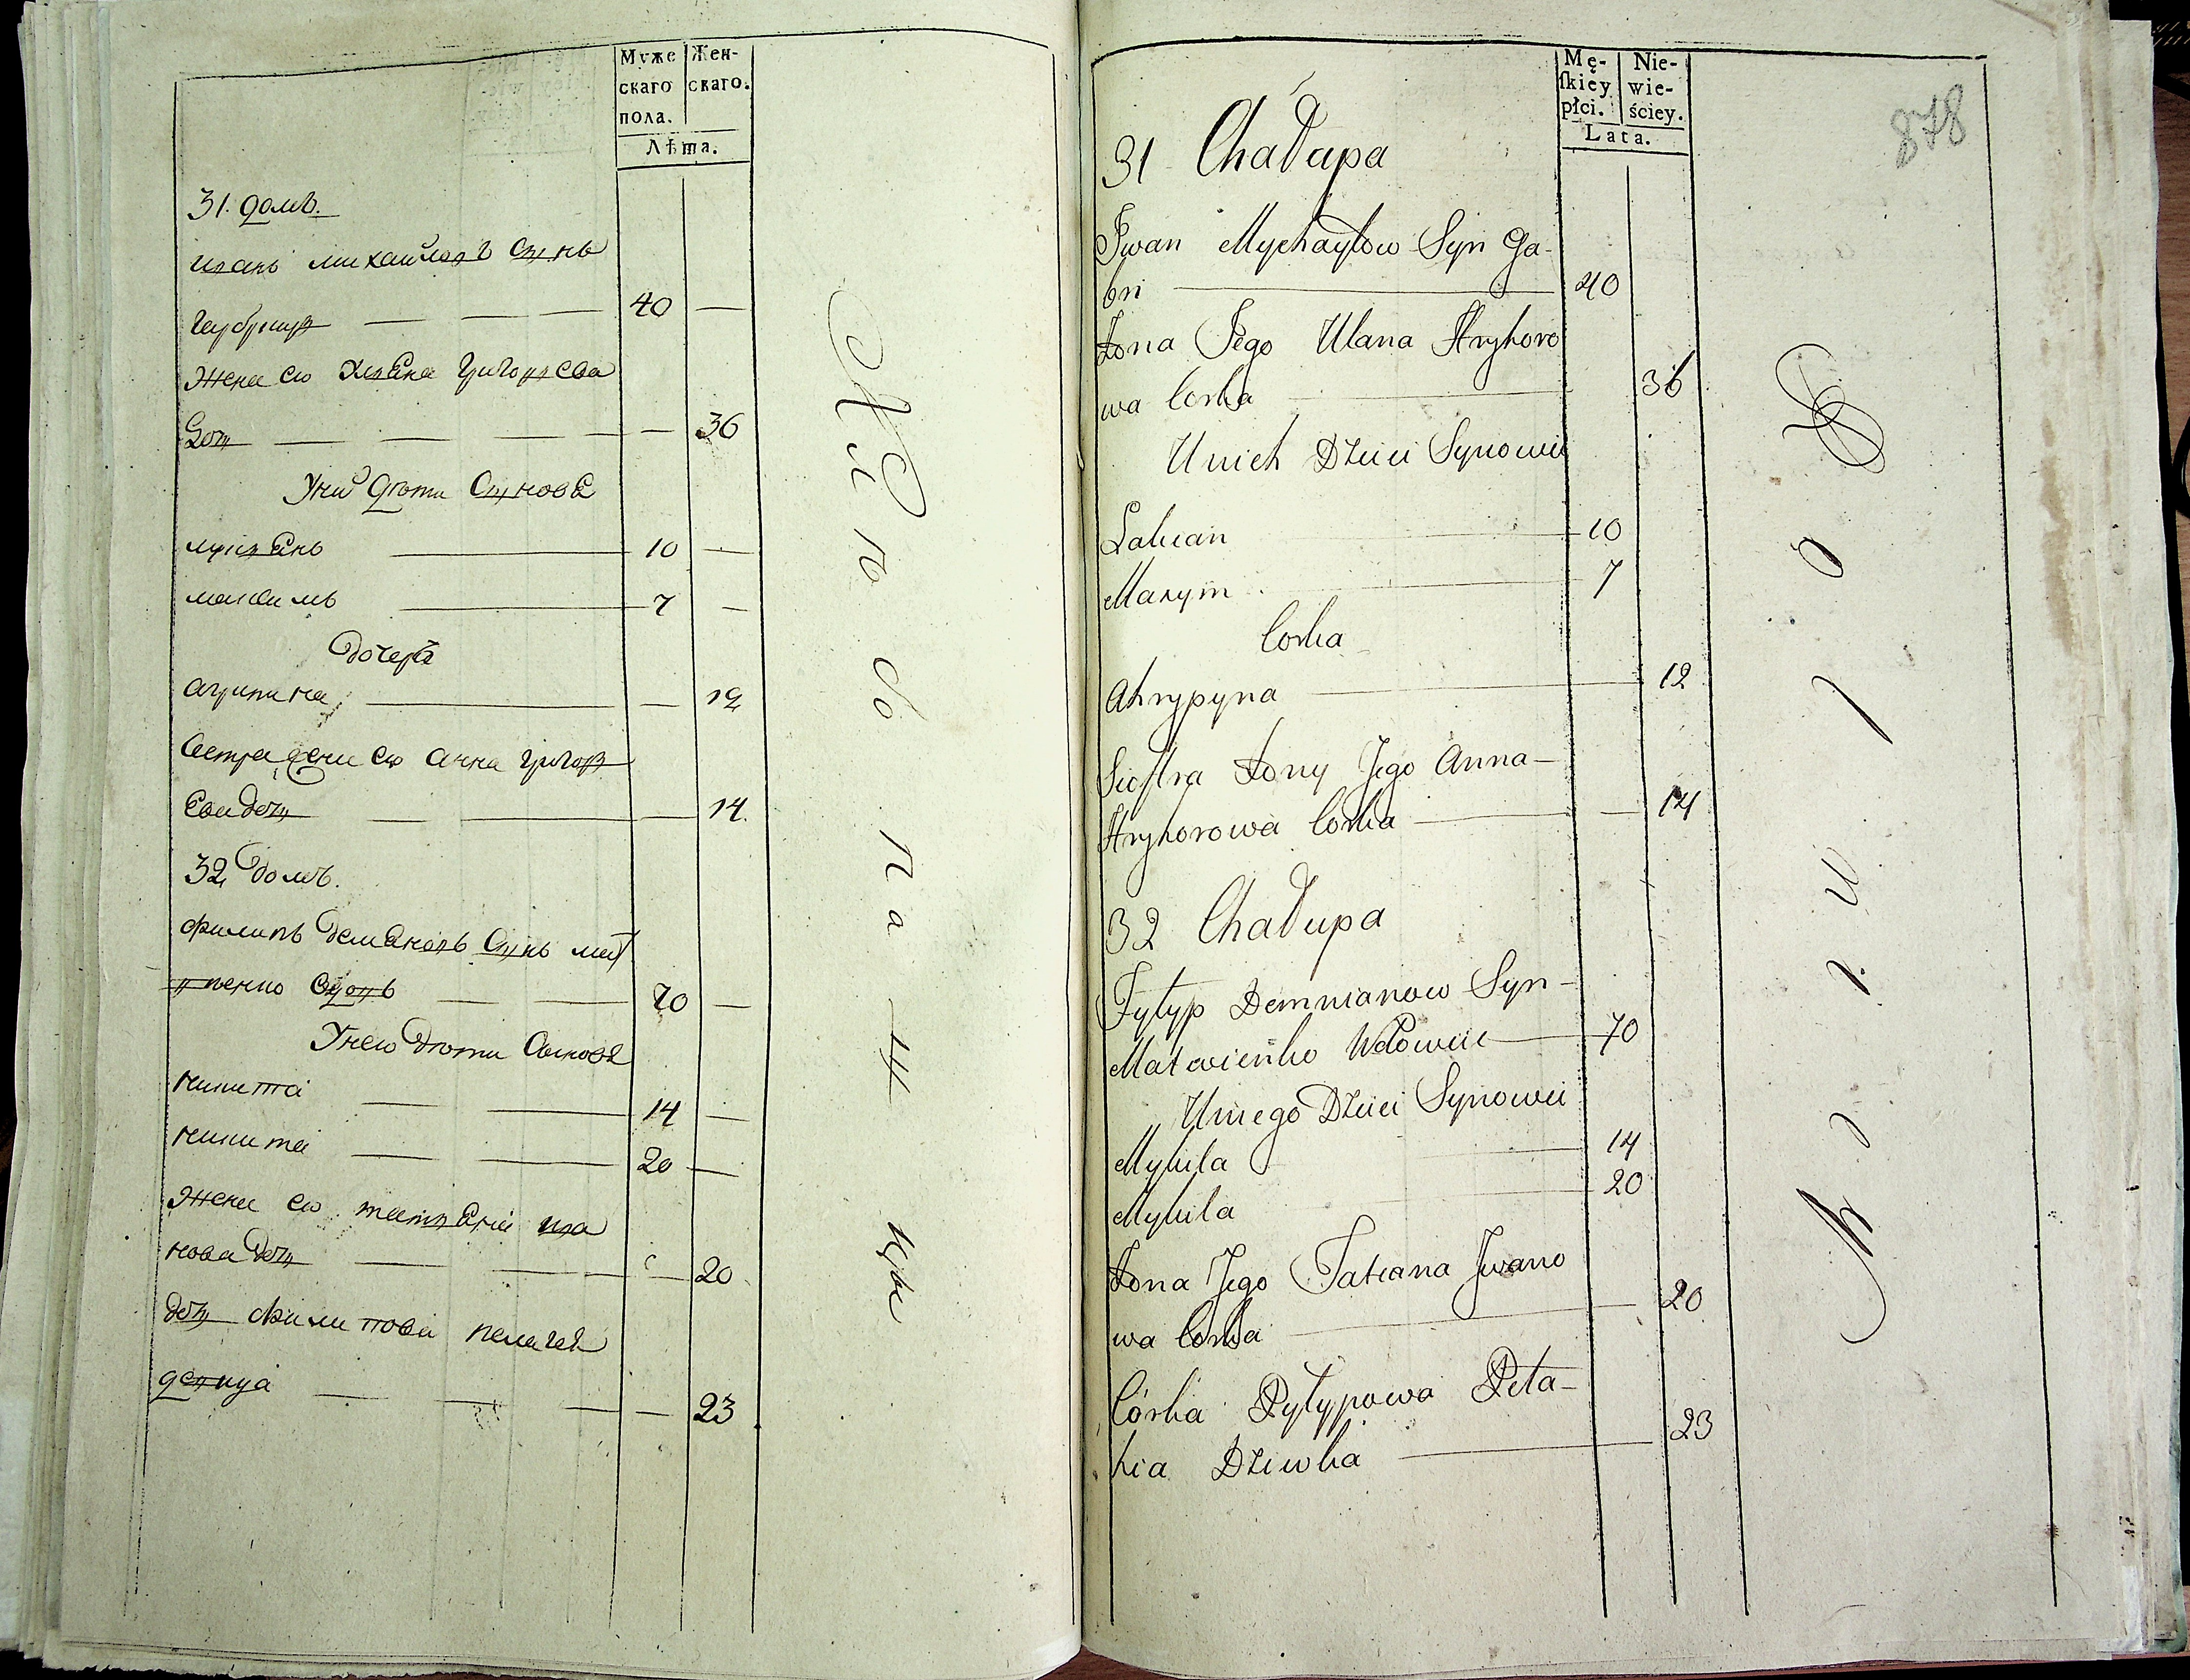 Муже
скаго
пола.
Жен-
скаго.
Лѣта.
31. домъ.
иванъ михайловъ сынъ
40
жена ею ульяна григорьева
доч 36
у них дѣти сыновья
лукьянъ 10
максимъ 7
дочеръ
агрипина 12
сестра жени ею анна григор
ева доч 14
32 домъ.
филипъ демьяновъ сынъ мат
вѣенко вдовъ 70
у нею дѣти сыновья
никита 14
никита 20
жена ею татьяна ива
нова доч 20
доч филипова пелагея
девица 23
Mę-
ſkiey
płci.
Nie-
wie-
ściey.
Lata.
878
31 Chałupa
Iwan Mychayłow Syn Ga-
bri 40
Żona Jego Ulana Hryhoro
wa Corka 36
U nich Dzieci Synowie
Lukian 10
Maxym 7
Corka
Ahrypyna 12
Siostra Żony Jego Anna
Hryhorowa Corka 14
32 Chałupa
Fyłyp Demnianow Syn
Matwieńko Wdowiec 70
U niego Dzieci Synowie
Mykita 14
Mykita 20
Żona Jego Tatiana Iwano
wa Corka 20
Córka Pyłypowa Peła-
hia Dziwka 23